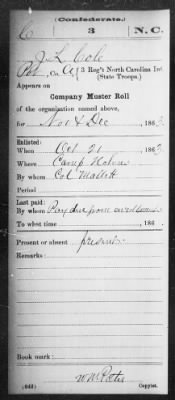 (Confederate.)
C 3 N.C.
J L Cole
Pvt, Co. A, 3 Reg't North Carolina Inf.
(State Troops.)
Appears on
Company Muster Roll
of the organization named above,
for Nov & Dec, 1863.
Enlisted:
When Oct 21, 1863
Where Camp Holmes
By whom Col Mallett
Period
Last paid:
By whom Pay due from enrollment
To what time , 186 .
Present or absent present
Remarks:
Book mark:
(642) Copyist.